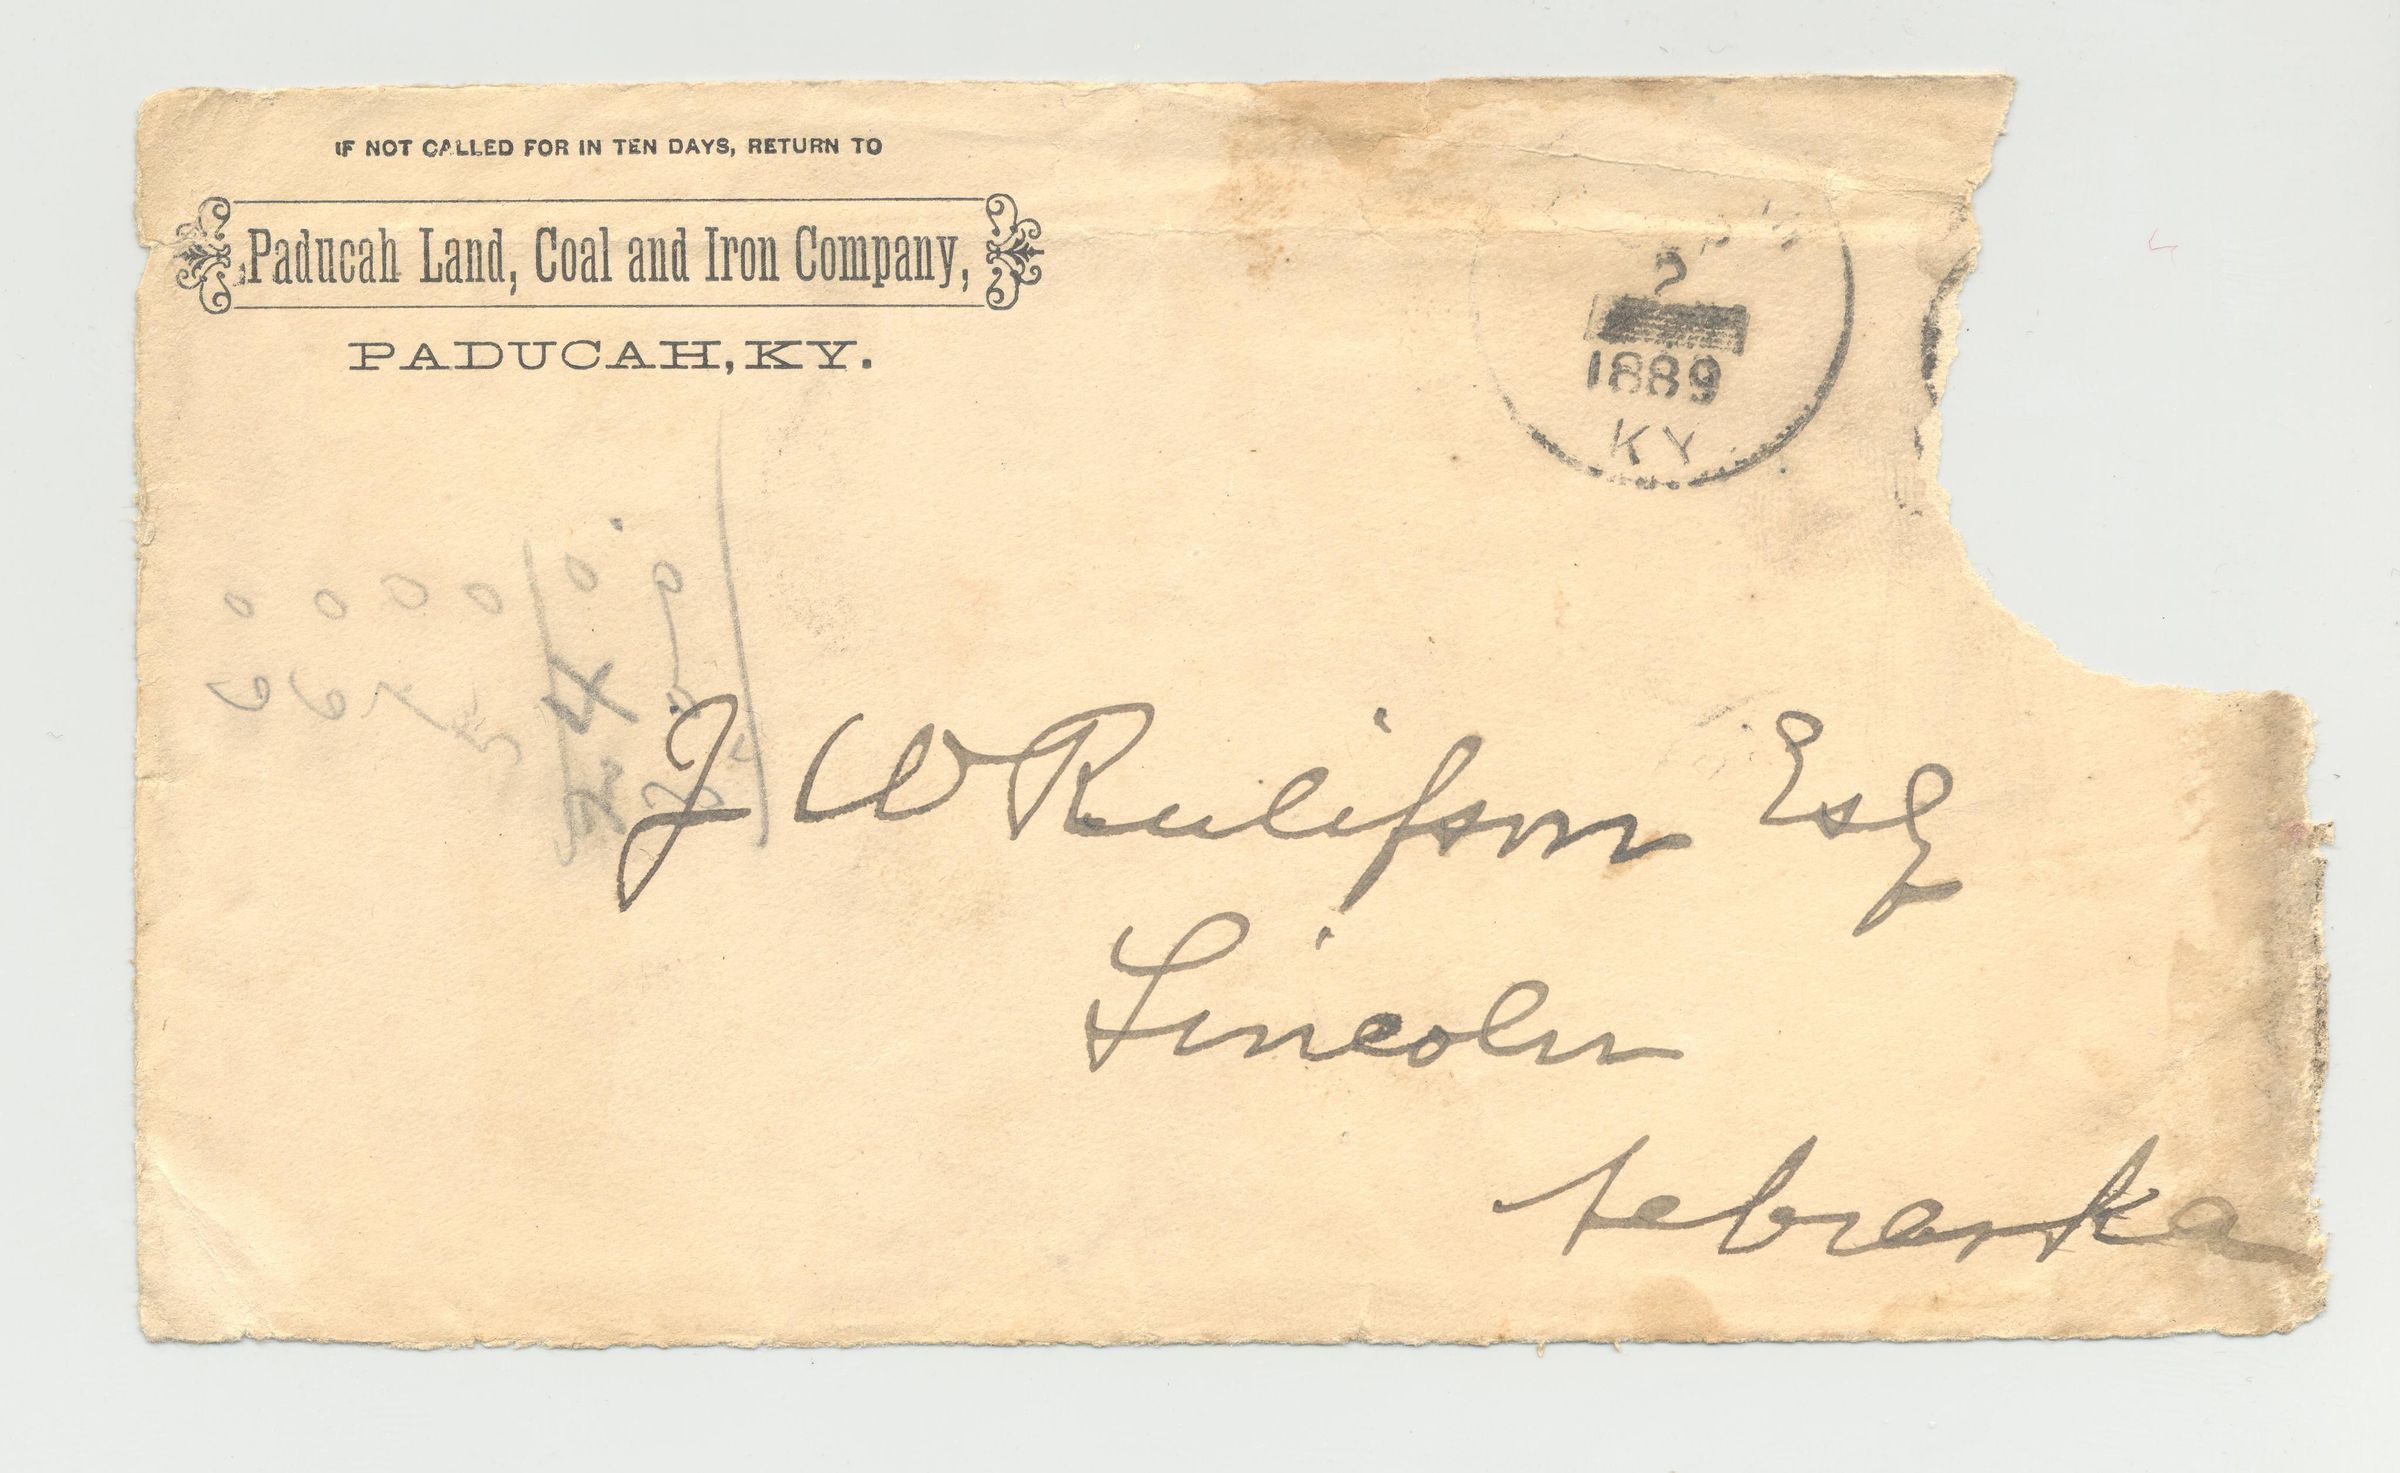 IF NOT CALLED FOR IN TEN DAYS, RETURN TO
Paducah Land, Coal and Iron Company,
PADUCAH, KY.
2
1889
KY
J W Rulifson Esq
Lincoln
Nebraska